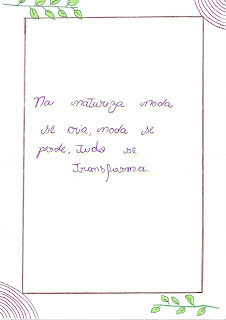 Na natureza nada
se cria, nada se
perde, tudo se
transforma.